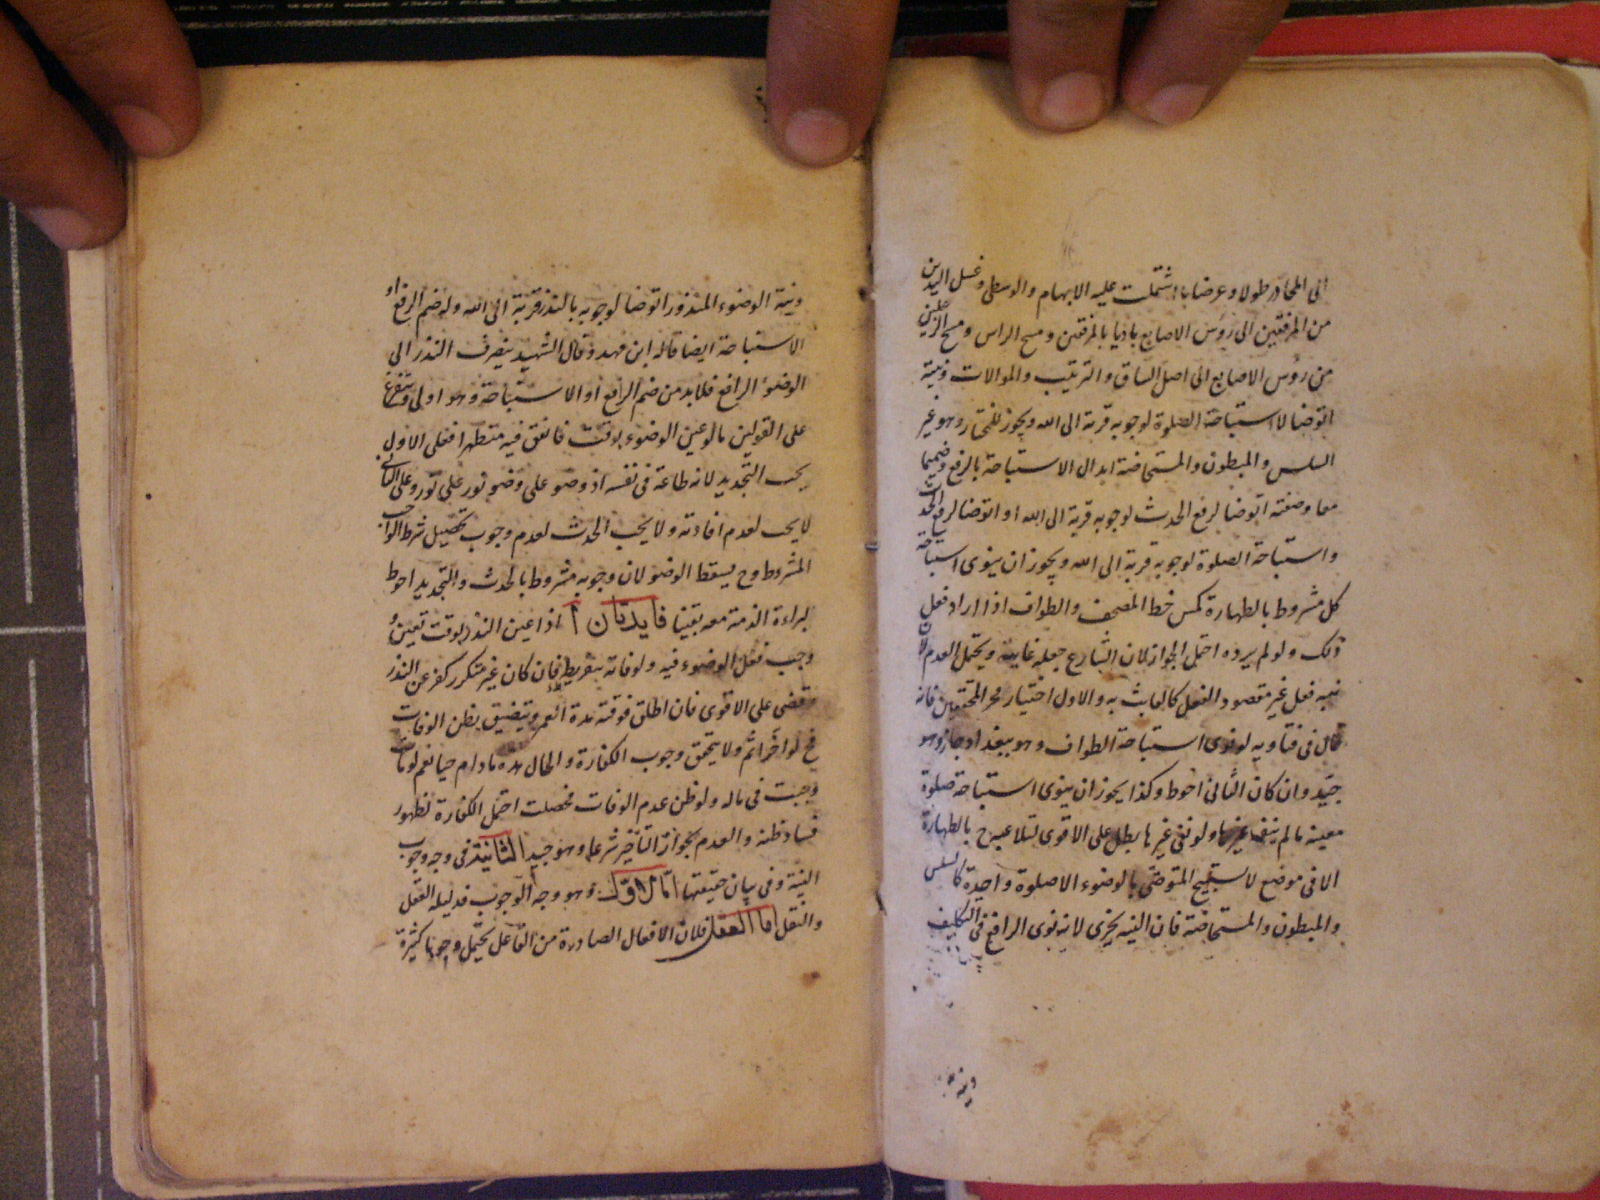 الى المحادر طولا وعرضا بما اشتملت عليه الابهام والوسطى وغسل اليدين
من المرفقين الى رؤس الاصابع باديا بالمرفقين ومسح الراس ومسح الرجلين
من رؤس الاصابع الى اصل الساق والترتيب والموالات ونية
اتوضا لاستباحة الصلوة لوجوبه قربة الى الله ويجوز للمختار وهو غير
السلس والمبطون والمستحاضة ابدال الاستباحة بالرفع وضمهما
معا وصفته اتوضا لرفع الحدث لوجوبه قربة الى الله او اتوضا لرفع الحدث
واستباحة الصلوة لوجوبه قربة الى الله ويجوز ان ينوى استباحة
كل مشروط بالطهارة كمس خط المصحف والطواف اذا اراد فعل
ذلك ولو لم يرده احتمل الجواز لان الشارع جعله غاية ويحتمل العدم لان
نيه فعل غير مقصود الفعل كالعابث به والاول اختيار فخر المحققين فانه
قال فى فتاويه لو نوى استباحة الطواف وهو ببغداد جاز وهو
جيد وان كان الثانى احوط وكذا يجوز ان ينوى استباحة صلوة
معينه مالم ينف غيرها ولو نفى غيرها بطل على الاقوى لتلاعبه ح بالطهارة
الا فى موضع لا يستبيح المتوضى بالوضوء الا صلوة واحدة كالسلس
والمبطون والمستحاضة فان النيه يجزى لانه نوى الرافع فى التكليف
ونية
ونية الوضوء المنذور اتوضا لوجوبه بالنذر قربة الى الله ولو ضم الرفع او
الاستباحة ايضا قاله ابن فهد وقال الشهيد ينصرف النذر الى
الوضوء الرافع فلابد من ضم الرافع او الاستباحة وهو اولى ويتفرع
على القولين مالو عين الوضوء بوقت فاتفق فيه متطهرا فعلى الاول
يجب التجديد لانه طاعة فى نفسه اذ وضو على وضو نور على نور وعلى الثانى
لا يجب لعدم افادته ولا يجب الحدث لعدم وجوب تحصيل شرط الواجب
المشروط وح يسقط الوضو لان وجوبه مشروط بالحدث والتجديد احوط
لبراءة الذمة معه يقينا فايدتان أ اذا عين النذر بوقت تعين و
وجب فعل الوضوء فيه ولو فاته بتفريط فان كان غير متكرر كفر عن النذر
وقضى على الاقوى فان اطلق فوقته مدة العمر ويتضيق بظن الوفات
فح لو اخر اثم ولا يتحقق وجوب الكفارة والحال هذه مادام حيا نعم لو مات
وجبت فى ماله ولو ظن عدم الوفات فحصلت احتمل الكفارة لظهور
فساد ظنه والعدم لجواز التاخير شرعا وهو جيد الثانية فى وجه وجوب
النية وفى بيان حقيقتها اما الاول وهو وجه الوجوب فدليله العقل
والنقل اما العقل فلان الافعال الصادرة من الفاعل يحتمل وجوها كثيرة